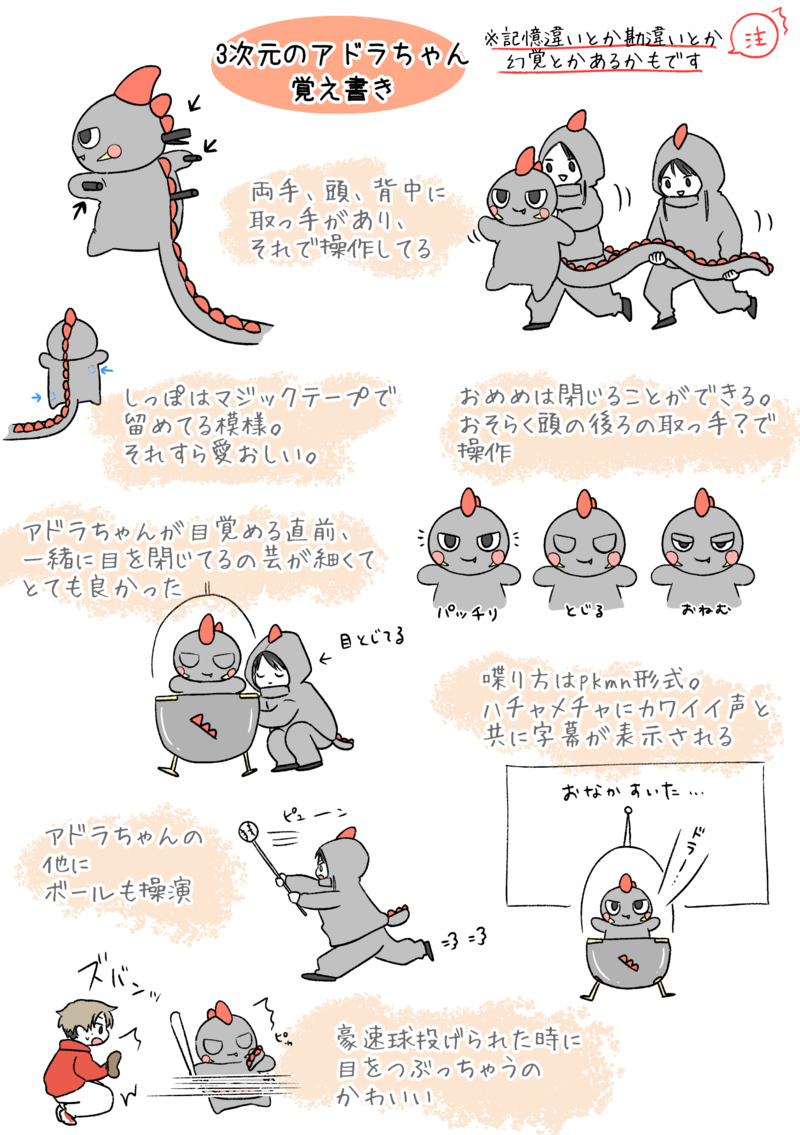 3次元のアドラちゃん
覚え書き
※記憶違いとか勘違いとか
幻覚とかあるかもです
注
両手、頭、背中に
取っ手があり、
それで操作してる
しっぽはマジックテープで
留めてる模様。
それすら愛おしい。
おめめは閉じることができる。
おそらく頭の後ろの取っ手?で
操作
パッチリ
とじる
おねむ
アドラちゃんが目覚める直前、
一緒に目を閉じてるの芸が細くて
とても良かった
目とじてる
喋り方はpkmn形式。
ハチャメチャにカワイイ声と
共に字幕が表示される
おなかすいた…
ドラー
アドラちゃんの
他に
ボールも操演
ピューン
ズバンッ
ピカ
豪速球投げられた時に
目をつぶっちゃうの
かわいい